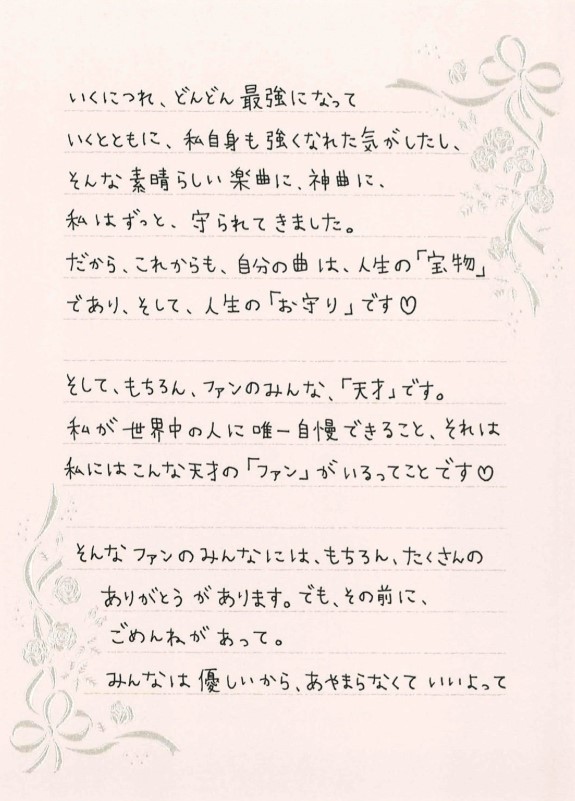 いくにつれ、どんどん最強になって
いくとともに、私自身も強くなれた気がしたし、
そんな素晴らしい楽曲に、神曲に、
私はずっと、守られてきました。
だから、これからも、自分の曲は、人生の「宝物」
であり、そして、人生の「お守り」です♡
そして、もちろん、ファンのみんな、「天才」です。
私が世界中の人に唯一自慢できること、それは
私にはこんな天才の「ファン」がいるってことです♡
そんなファンのみんなには、もちろん、たくさんの
ありがとうがあります。でも、その前に、
ごめんねがあって。
みんなは優しいから、あやまらなくていいよって